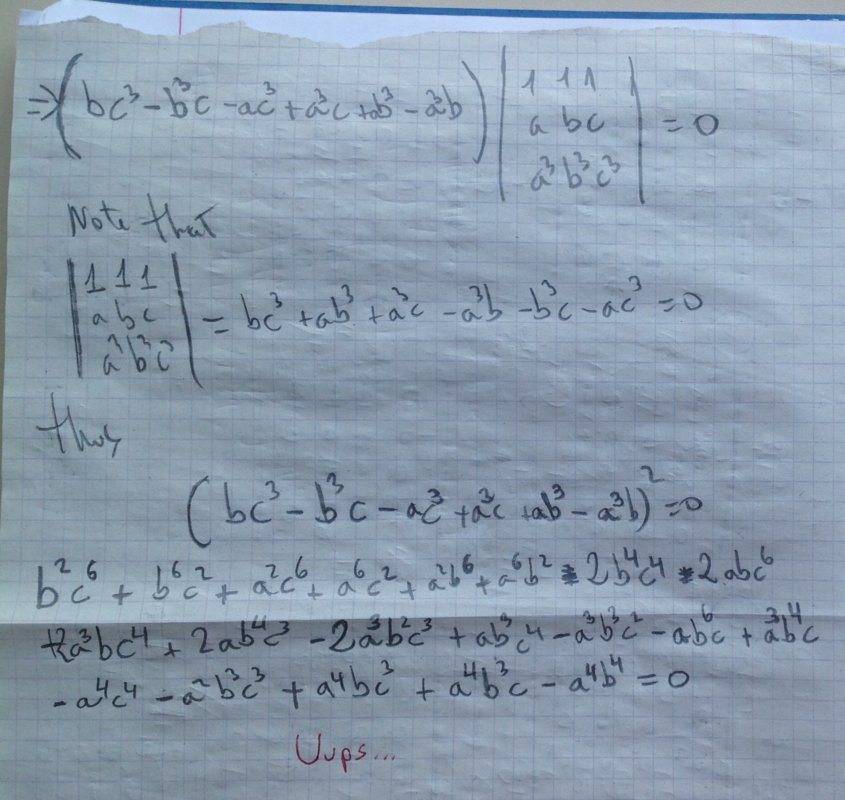 ⇒ (bc³ - b³c - ac³ + a³c + ab³ - a³b) | 1 1 1 | = 0
a b c
a³ b³ c³
Note that
| 1 1 1 |
a b c = bc³ + ab³ + a³c - a³b - b³c - ac³ = 0
a³ b³ c³
thus
(bc³ - b³c - ac³ + a³c + ab³ - a³b)² = 0
b²c⁶ + b⁶c² + a²c⁶ + a⁶c² + a²b⁶ + a⁶b² - 2b⁴c⁴ - 2abc⁶
+2a³bc⁴ + 2ab⁴c³ - 2a³b²c³ + ab³c⁴ - a³b³c² - abc⁶ + a³b⁴c
- a⁴c⁴ - a²b³c³ + a⁴bc³ + a⁴b³c - a⁴b⁴ = 0
Uups...